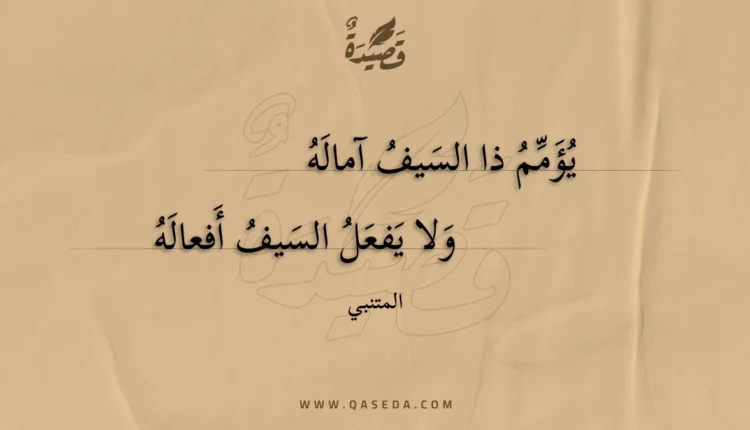 قَصِيدَةٌ
يُؤَمِّمُ ذا السَيفُ آمالَهُ
وَلا يَفعَلُ السَيفُ أَفعالَهُ
المتنبي
WWW.QASEDA.COM